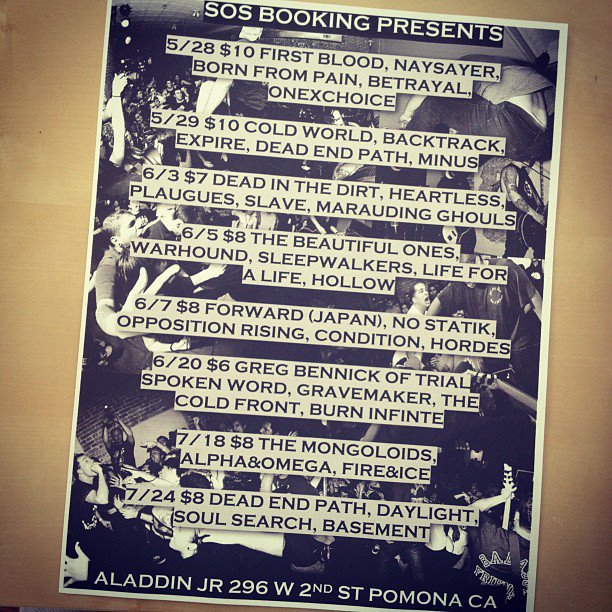 SOS BOOKING PRESENTS
5/28 $10 FIRST BLOOD, NAYSAYER,
BORN FROM PAIN, BETRAYAL,
ONEXCHOICE
5/29 $10 COLD WORLD, BACKTRACK,
EXPIRE, DEAD END PATH, MINUS
6/3 $7 DEAD IN THE DIRT, HEARTLESS,
PLAUGUES, SLAVE, MARAUDING GHOULS
6/5 $8 THE BEAUTIFUL ONES,
WARHOUND, SLEEPWALKERS, LIFE FOR
A LIFE, HOLLOW
6/7 $8 FORWARD (JAPAN), NO STATIK,
OPPOSITION RISING, CONDITION, HORDES
6/20 $6 GREG BENNICK OF TRIAL
SPOKEN WORD, GRAVEMAKER, THE
COLD FRONT, BURN INFINTE
7/18 $8 THE MONGOLOIDS,
ALPHA&OMEGA, FIRE&ICE
7/24 $8 DEAD END PATH, DAYLIGHT,
SOUL SEARCH, BASEMENT
ALADDIN JR 296 W 2ND ST POMONA CA